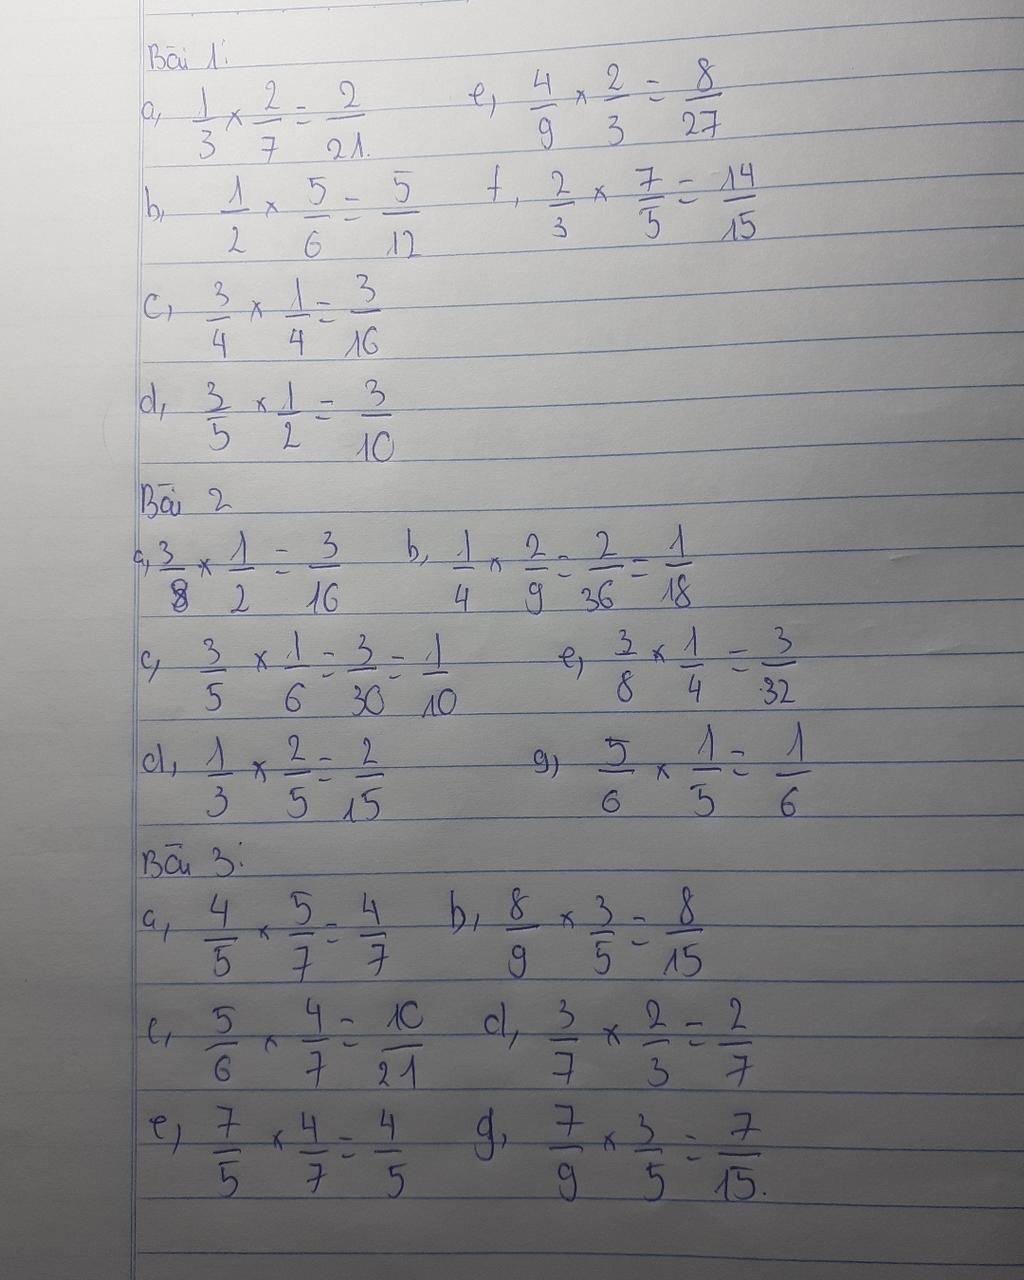 Bài 1:
a, 1/3 × 2/7 = 2/21. e, 4/9 × 2/3 = 8/27
b, 1/2 × 5/6 = 5/12 f, 2/3 × 7/5 = 14/15
c, 3/4 × 1/4 = 3/16
d, 3/5 × 1/2 = 3/10
Bài 2
a, 3/8 × 1/2 = 3/16 b, 1/4 × 2/9 = 2/36 = 1/18
c, 3/5 × 1/6 = 3/30 = 1/10 e, 3/8 × 1/4 = 3/32
d, 1/3 × 2/5 = 2/15 g, 5/6 × 1/5 = 1/6
Bài 3:
a, 4/5 × 5/7 = 4/7 b, 8/9 × 3/5 = 8/15
c, 5/6 × 4/7 = 10/21 d, 3/7 × 2/3 = 2/7
e, 7/5 × 4/7 = 4/5 g, 7/9 × 3/5 = 7/15.